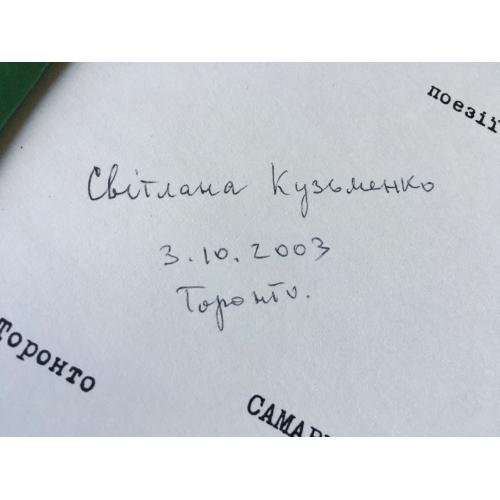 поезії
Світлана Кузьменко
3.10.2003
Торонто.
Торонто